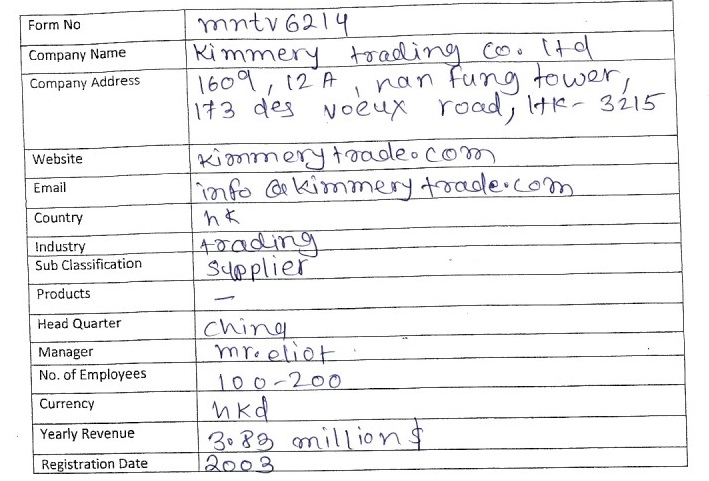 Form No mntv6214
Company Name Kimmery trading co. ltd
Company Address 1609, 12 A, nan fung tower,
173 des voeux road, HK- 3215
Website kimmerytrade.com
Email info@kimmerytrade.com
Country hk
Industry trading
Sub Classification supplier
Products —
Head Quarter china
Manager mr. eliot
No. of Employees 100-200
Currency hkd
Yearly Revenue 3.83 million $
Registration Date 2003